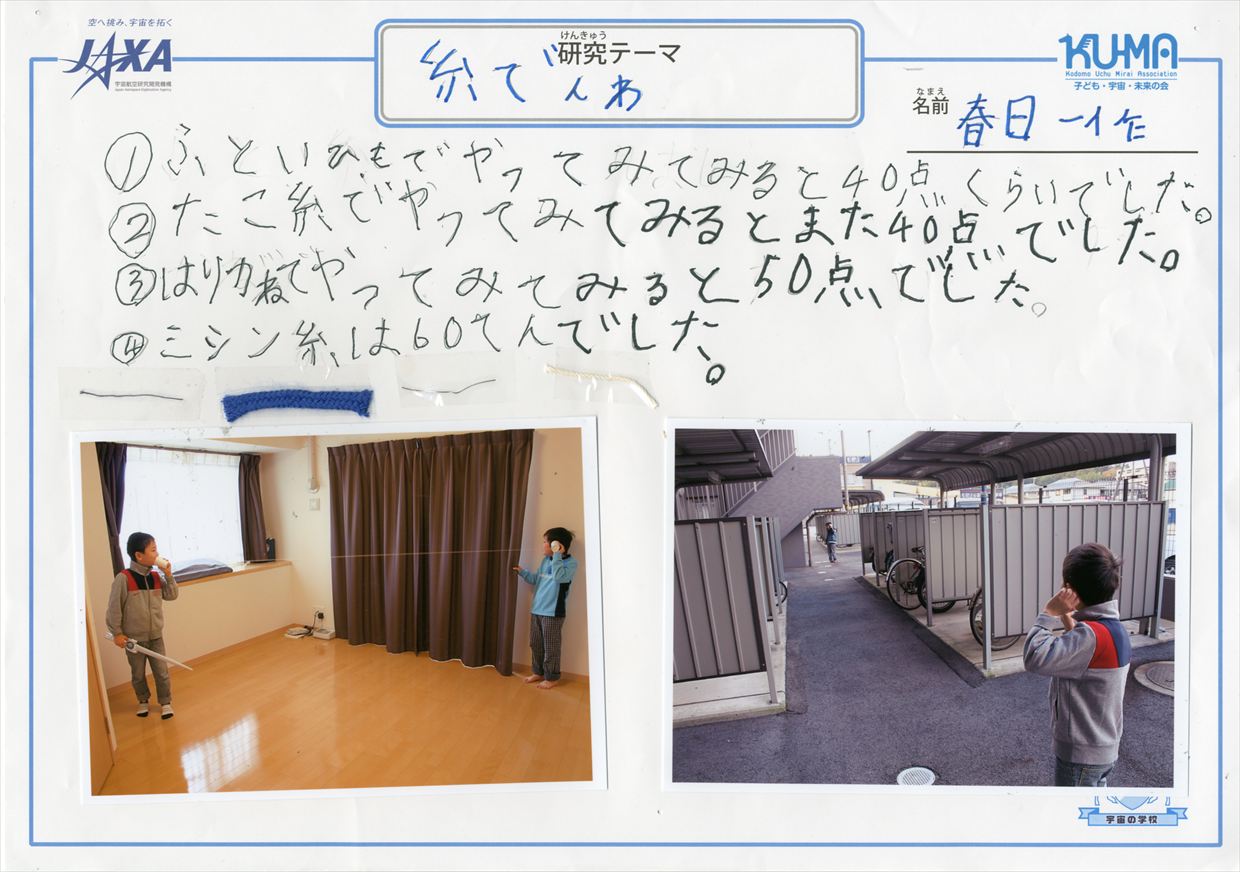 空へ挑み、宇宙を拓く
JAXA
宇宙航空研究開発機構
Japan Aerospace Exploration Agency
けんきゅう
研究テーマ
糸でんわ
KU-MA
Kodomo Uchu Mirai Association
子ども・宇宙・未来の会
なまえ
名前
春日
①ふといひもでやってみてみると40点くらいでした。
②たこ糸でやってみてみるとまた40点でした。
③はりがねでやってみてみると50点でした。
④ミシン糸は60てんでした。
宇宙の学校